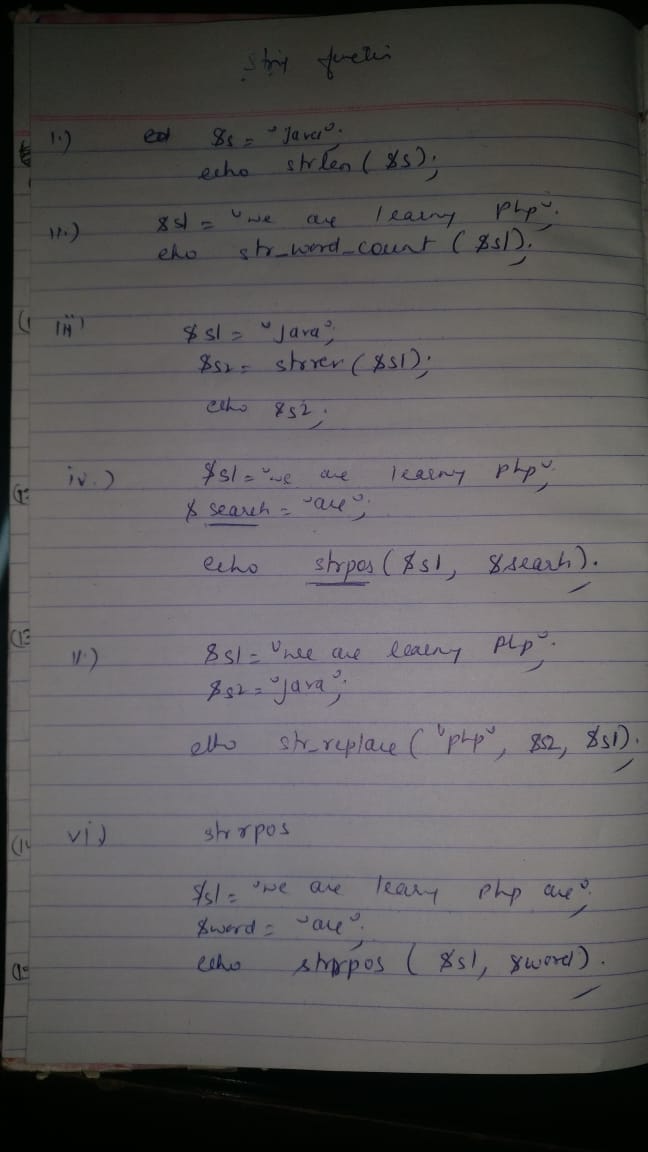 i.) $s = "java";
echo strlen ( $s );
ii.) $s1 = "we are learny php";
eho str_word_count ( $s1 );
iii) $s1 = "Java";
$s2 = strrev ( $s1 );
echo $s2;
iv.) $s1 = "we are learny php";
$ search = "are";
echo strpos ( $s1, $search );
v.) $s1 = "we are learny php";
$s2 = "java";
echo str_replace ( "php", $s2, $s1 );
vi) strrpos
$s1 = "we are learny php are";
$word = "are";
echo strrpos ( $s1, $word );